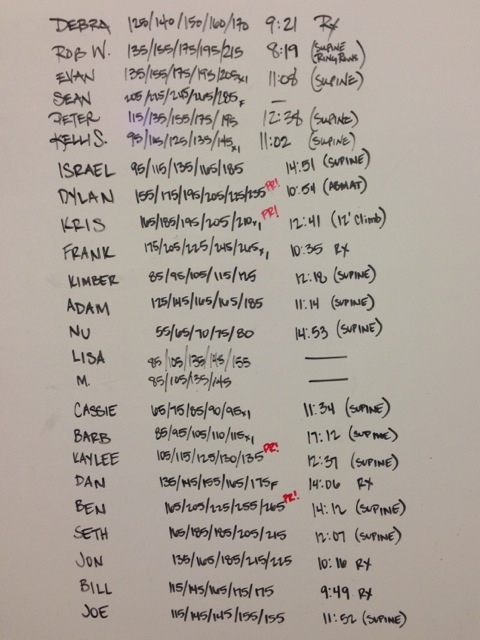 DEBRA 120/140/150/160/170 9:21 RX
ROB W. 135/155/175/195/215 8:19 (SUPINE RING ROWS)
EVAN 135/155/175/195/205x1 11:08 (SUPINE)
SEAN 205/225/245/265/285F —
PETER 115/135/155/175/195 12:38 (SUPINE)
KELLI S. 95/115/125/135/145x1 11:02 (SUPINE)
ISRAEL 95/115/135/165/185 14:51 (SUPINE)
DYLAN 155/175/195/205/225/235 PR! 10:54 (ABMAT)
KRIS 165/185/195/205/210x1 PR! 12:41 (12' Climb)
FRANK 175/205/225/245/265x1 10:35 RX
KIMBER 85/95/105/115/125 12:18 (SUPINE)
ADAM 125/145/165/165/185 11:14 (SUPINE)
NU 55/65/70/75/80 14:53 (SUPINE)
LISA 85/105/135/145/155 —
M. 85/105/135/145 —
CASSIE 65/75/85/90/95x1 11:34 (SUPINE)
BARB 85/95/105/110/115x1 17:12 (SUPINE)
KAYLEE 105/115/125/130/135 PR! 12:37 (SUPINE)
DAN 135/145/155/165/175F 14:06 RX
BEN 165/205/225/255/265 PR! 14:12 (SUPINE)
SETH 165/185/185/205/215 12:07 (SUPINE)
JON 135/165/185/215/225 10:16 RX
BILL 115/145/165/175/175 9:49 RX
JOE 115/145/145/155/155 11:52 (SUPINE)